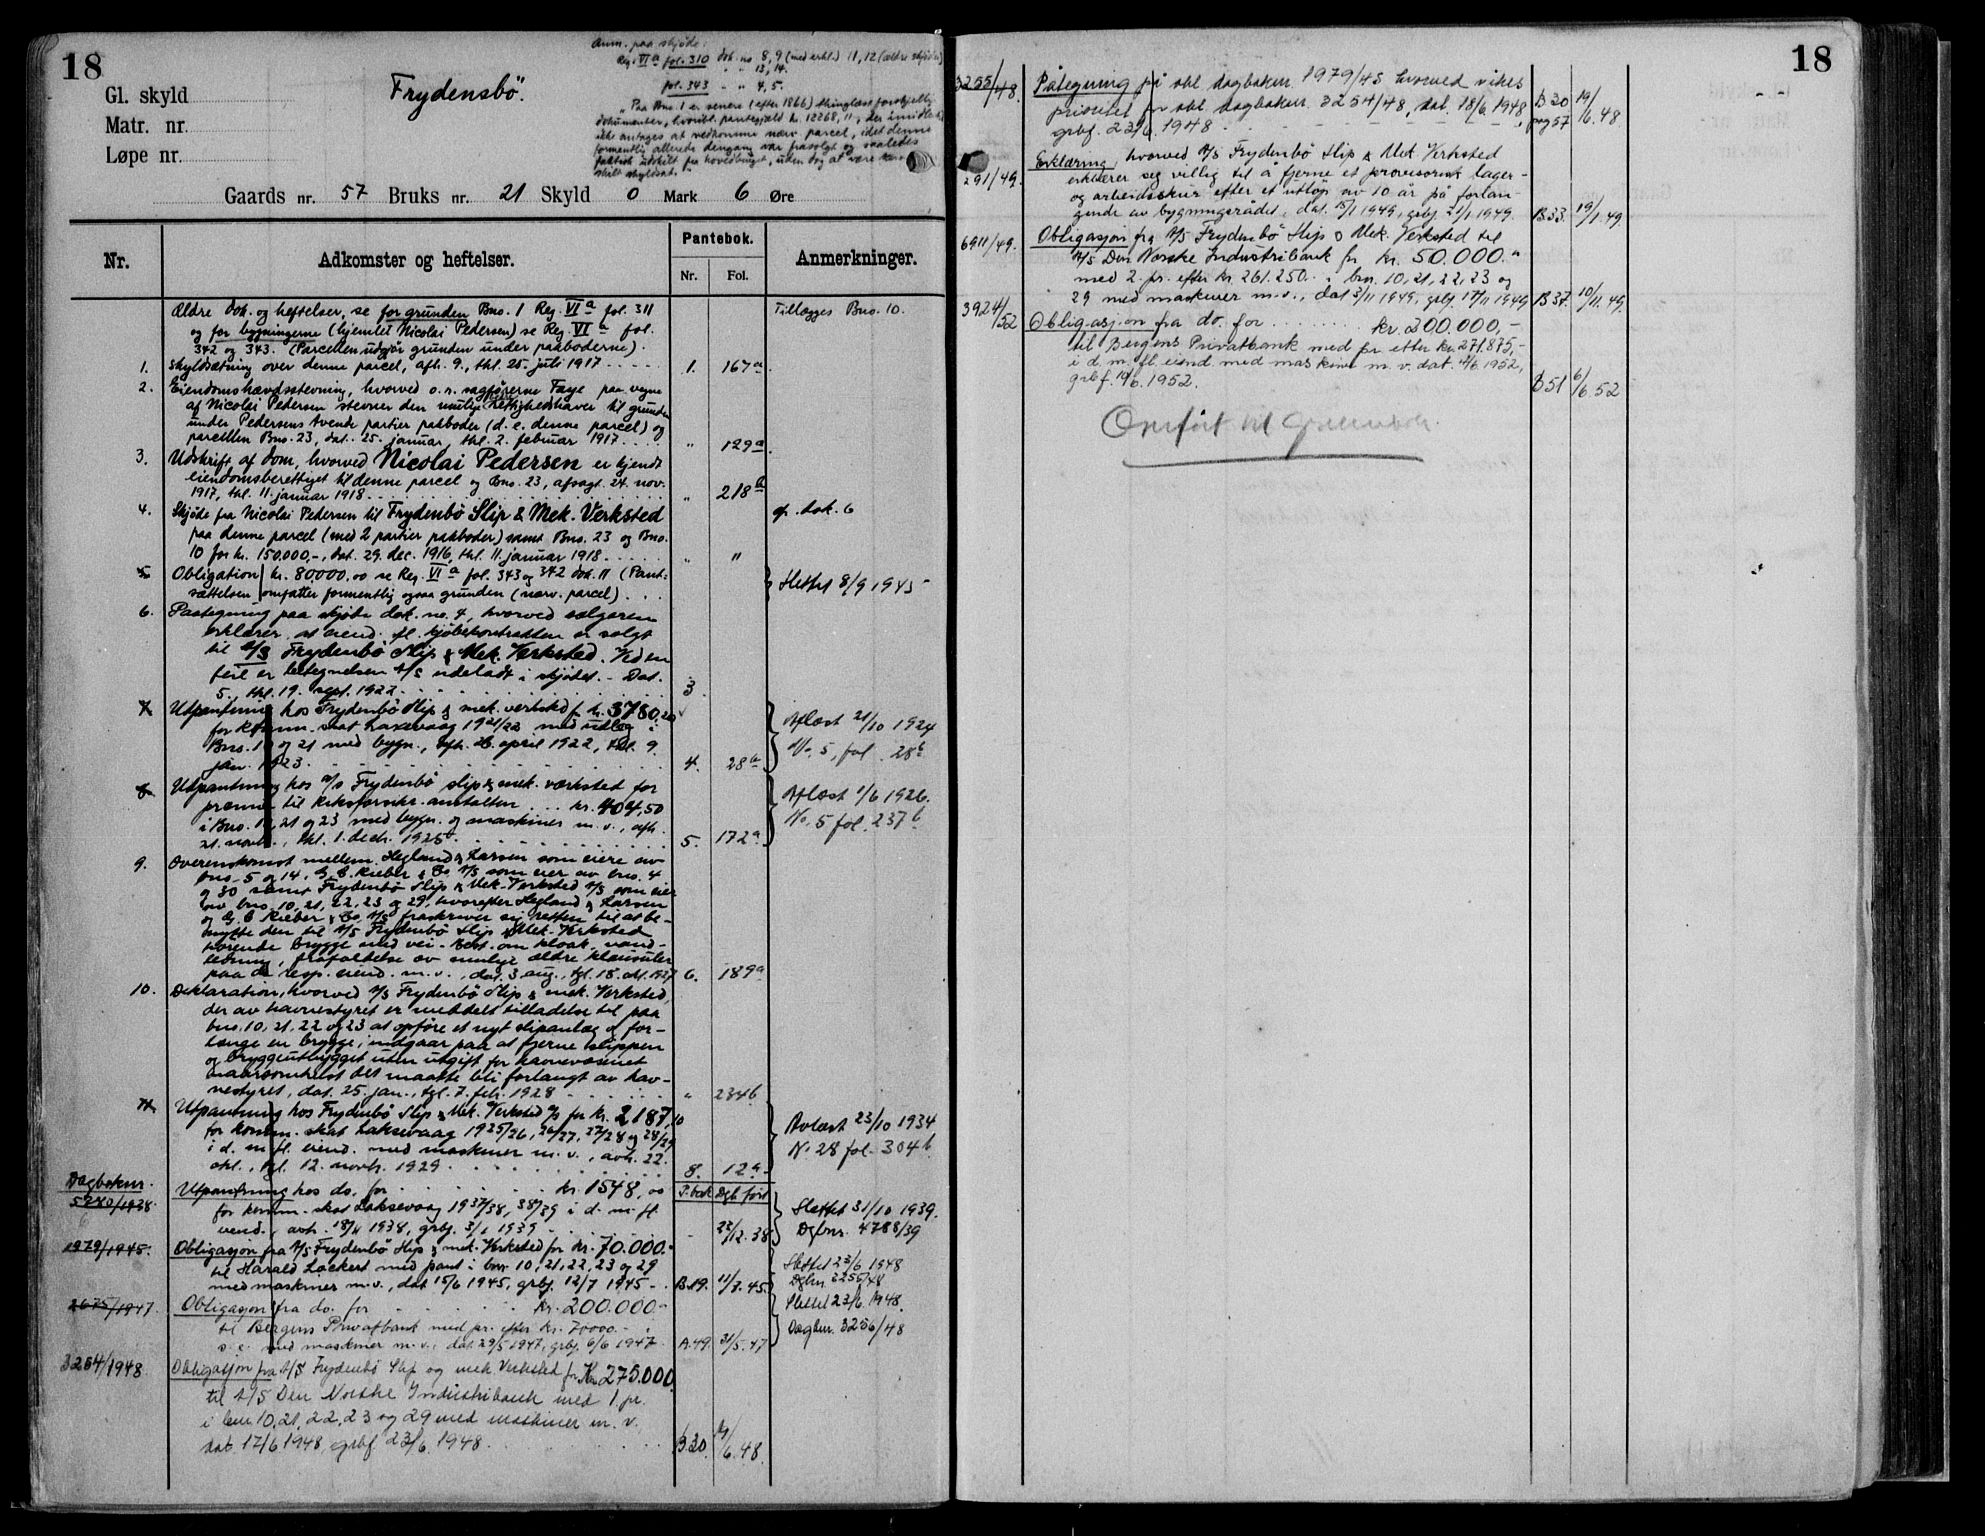 18
Anm. paa skjøde:
Reg. VIa fol. 310 dok. no. 8, 9 (med erkl.) 11, 12 (ældre skjøder)
" " 13, 14.
fol. 343 - " 4, 5.
"Paa Bno. 1 er senere (efter 1866) thinglæst forskjellige
dokumenter, hvoribl. pantegjæld kr. 12268,11, der imidlertid
ikke antages at vedkomme nærv. parcel, idet denne
formentlig allerede dengang var frasolgt og saaledes
faktisk udskilt fra hovedbruget, uden dog at være
skilt skyldsat."
Frydensbö.
Gl. skyld
Matr. nr.
Løpe nr.
Gaards nr. 57 Bruks nr. 21 Skyld 0 Mark 6 Øre
Nr.
Adkomster og heftelser.
Pantebok.
Nr. Fol.
Anmerkninger.
Ældre dok. og heftelser, se for grunden Bno. 1 Reg. VIa fol. 311 Tillægges Bno. 10.
og for bygningerne (hjemlet Nicolai Pedersen) se Reg. VIa fol.
342 og 343. (Parcellen udgjør grunden under pakboderne).
1. Skyldsætning over denne parcel, afh. 9., thl. 25. juli 1917 1. 167a
2. Eiendomshævdsstevning, hvorved o.r. sagførerne Faye paa vegne
af Nicolai Pedersen stevner den mulige rettighedshaver til grunden
under Pedersens tvende partier pakboder (d.e. denne parcel) og
parcellen Bno. 23, dat. 25. januar, thl. 2. februar 1917 " 129a
3. Udskrift af dom, hvorved Nicolai Pedersen er kjendt
eiendomsberettiget til denne parcel og Bno. 23, afsagt 24. nov.
1917, thl. 11. januar 1918 " 218b
4. Skjøde fra Nicolai Pedersen til Frydenbö Slip & Mek. Verksted cfr. dok. 6
paa denne parcel (med 2 partier pakboder) samt Bno. 23 og Bno.
10 for kr. 150.000,-, dat. 29. dec. 1916, thl. 11. januar 1918 " "
5. Obligation kr. 80000.00 se Reg. VIa fol. 343 og 342 dok. 11 (Pant- Slettet 8/9 1945
sættelsen omfatter formentlig ogsaa grunden (nærv. parcel)
6. Paategning paa skjøde dok. no. 4, hvorved sælgeren
erklærer at eiend. ifl. kjøbekontrakten er solgt
til A/S Frydenbö Slip & Mek. Verksted. Ved en
feil er betegnelsen A/S udeladt i skjødet. - Dat.
5., thl. 19. sept. 1922 3
7. Utpantning hos Frydenbö Slip & mek. verksted f. kr. 3780,20
for komm. skat Laxevaag 1921/22 med utlæg i
Bno. 10 og 21 med bygn., afh. 26. april 1922, thl. 9.
jan. 1923 4. 28a
Aflæst 21/10 1924
No. 5, fol. 28b
8. Utpantning hos A/S Frydenbö slip & mek. værksted for
præmie til Riksforsikr. anstalten kr. 404,50
i Bno. 10, 21 og 23 med bygn. og maskiner m.v., afh.
21. novbr., thl. 1. decbr. 1925 5. 172a
Aflæst 1/6 1926.
No. 5 fol. 237b
9. Overenskomst mellem Hegland & Larsen som eiere av
bno. 5 og 14, G. C. Rieber & Co A/S som eier av bno. 4
og 30 samt Frydenbö Slip & Mek. Verksted A/S som eier
av bno. 10, 21, 22, 23 og 29, hvorefter Hegland & Larsen
og G. C. Rieber & Co. A/S fraskriver sig retten til at be-
nytte den til A/S Frydenbö Slip & Mek. Verksted
hørende brygge med vei - Best. om kloak, vand-
ledning, frafaldelse av mulige ældre klausuler
paa de resp. eiend. m.v., dat. 3. aug., tgl. 18. okt. 1927 6. 189a
10. Deklaration, hvorved A/S Frydenbö Slip & mek. Verksted,
der av havnestyret er meddelt tilladelse til paa
bno. 10, 21, 22 og 23 at opføre et nyt slipanlæg og for-
længe en brygge, indgaar paa at fjerne slippen
og bryggeutbygget uten utgift for havnevæsenet
naarsomhelst det maatte bli forlangt av hav-
nestyret, dat. 25. jan., tgl. 7. febr. 1928 " 234b
11. Utpantning hos Frydenbö Slip & Mek. Verksted A/S for kr. 2187,10
for komm. skat Laksevaag 1925/26, 26/27, 27/28 og 28/29
i d. m. fl. eiend. med maskiner m.v., avh. 22.
okt., tgl. 12. novbr. 1929 8. 12a
Avlæst 23/10 1934
No 28 fol. 304b
Dagboknr. P.bok Dgb. ført
5240/1938 Utpantning hos do. for kr. 1548,00
for komm. skat Laksevaag 1937/38, 38/39 i d. m. fl.
eiend., avh. 18/11 1938, grbf. 3/1 1939 - 22/12.38
Slettet 31/10 1939.
Dgbnr. 4788/39
1979/1945. Obligasjon fra A/S Frydenbö Slip & mek. Verksted for kr. 70.000.-
til Harald Lockert med pant i bnr. 10, 21, 22, 23 og 29
med maskiner m.v., dat. 15/6 1945, grbf. 12/7 1945 B.19. 11/7.45.
Slettet 23/6 1948
Dgbnr 3255/48
2675/1947. Obligasjon fra do. for kr. 200.000.-
til Bergens Privatbank med pr. efter kr. 70000.- i
s. e. med maskiner m.v., dat. 29/5 1947, grbf. 6/6 1947 A.49. 31/5.47
Slettet 23/6 1948.
Dagbnr. 3256/48
3254/1948 Obligasjon fra A/S Frydenbö Slip og mek Verksted for Kr 275.000
til A/S Den Norske Industribank med 1. pr.
i bnr 10, 21, 22, 23 og 29 med maskiner m.v.
dat. 17/6 1948, grbf 23/6 1948 B.30. 19/6.48.
18
3255/48. Påtegning på obl dagboknr. 1979/45 hvorved vikes
prioritet for obl. dagboknr. 3254/48, dat. 18/6 1948 B 30 19/6.48
grbf. 23/6 1948 pag 57
291/49. Erklæring hvorved A/S Frydenbö Slip & Mek. Verksted
erklærer seg villig til å fjerne et provisorisk lager-
og arbeidsskur efter et utløp av 10 år på forlan-
gende av bygningsrådet, dat. 15/1 1949, grbf. 21/1 1949. B33. 19/1.49.
6911/49. Obligasjon fra A/S Frydenbö Slip & Mek. Verksted til
A/S Den Norske Industribank for kr. 50.000.-
med 2. pr. efter kr. 261.250.- i bnr. 10, 21, 22, 23 og
29 med maskiner m.v., dat 3/11 1949, grbf. 17/11 1949 B37. 10/11.49.
3924/52 Obligasjon fra do. for kr. 200.000,-
til Bergens Privatbank med pr. etter kr. 271.875,-
i d. m. fl. eiend. med maskiner m.v. dat. 4/6 1952,
grbf. 10/6. 1952. B51 6/6 52
Omført til grunnbok.